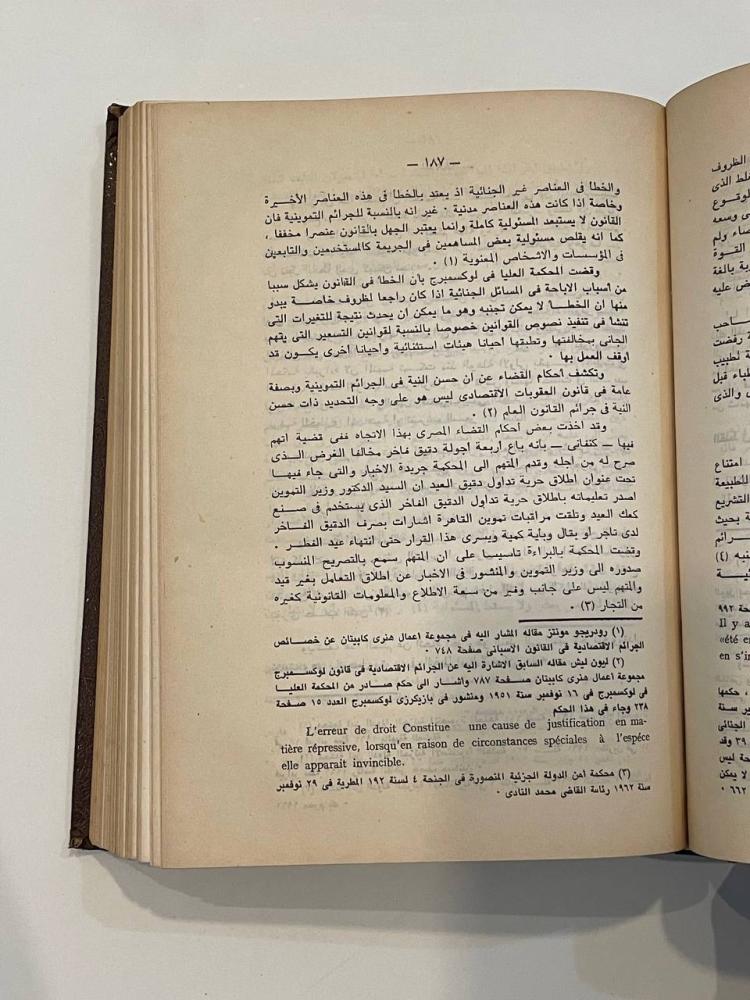 — ١٨٧ —
والخطأ فى العناصر غير الجنائية اذ يعتد بالخطأ فى هذه العناصر الأخيرة
وخاصة اذا كانت هذه العناصر مدنية ٠ غير انه بالنسبة للجرائم التموينية فان
القانون لا يستبعد المسئولية كاملة وانما يعتبر الجهل بالقانون عنصرا مخففا ،
كما انه يقلص مسئولية بعض المساهمين فى الجريمة كالمستخدمين والتابعين
فى المؤسسات والأشخاص المعنوية (١) ٠
وقضت المحكمة العليا فى لوكسمبرج بأن الخطأ فى القانون يشكل سببا
من أسباب الاباحة فى المسائل الجنائية اذا كان راجعا لظروف خاصة يبدو
منها ان الخطأ لا يمكن تجنبه وهو ما يمكن أن يحدث نتيجة للتغيرات التى
تنشأ فى تنفيذ نصوص القوانين خصوصا بالنسبة لقوانين التسعير التى يتهم
الجانى بمخالفتها وتطبقها أحيانا هيئات استثنائية وأحيانا أخرى يكون قد
أوقف العمل بها ٠
وتكشف أحكام القضاء عن أن حسن النية فى الجرائم التموينية وبصفة
عامة فى قانون العقوبات الاقتصادى ليس هو على وجه التحديد ذات حسن
النية فى جرائم القانون العام (٢) ٠
وقد أخذت بعض أحكام القضاء المصرى بهذا الاتجاه ففى قضية اتهم
فيها — كنفانى — بأنه باع أربعة أجولة دقيق فاخر مخالفا الغرض الذى
صرح له من أجله وقدم المتهم الى المحكمة جريدة الأخبار والتى جاء فيها
تحت عنوان اطلاق حرية تداول دقيق العيد ان السيد الدكتور وزير التموين
أصدر تعليماته باطلاق حرية تداول الدقيق الفاخر الذى يستخدم فى صنع
كعك العيد وتلقت مراقبات تموين القاهرة اشارات بصرف الدقيق الفاخر
لدى تاجر أو بقال وبأية كمية ويسرى هذا القرار حتى انتهاء عيد الفطر ٠
وقضت المحكمة بالبراءة تأسيسا على ان المتهم سمع بالتصريح المنسوب
صدوره الى وزير التموين والمنشور فى الأخبار عن اطلاق التعامل بغير قيد
والمتهم ليس على جانب وفير من سعة الاطلاع والمعلومات القانونية كغيره
من التجار (٣) ٠
(١) رودريجو مونتز مقاله المشار اليه فى مجموعة أعمال هنرى كابيتان عن خصائص
الجرائم الاقتصادية فى القانون الأسبانى صفحة ٧٤٨ ٠
(٢) ليون ليش مقاله السابق الاشارة اليه عن الجرائم الاقتصادية فى قانون لوكسمبرج
مجموعة أعمال هنرى كابيتان صفحة ٧٨٧ وأشار الى حكم صادر من المحكمة العليا
فى لوكسمبرج فى ١٦ نوفمبر سنة ١٩٥١ ومنشور فى بازيكرزى لوكسمبرج العدد ١٥ صفحة
٢٣٨ وجاء فى هذا الحكم
L'erreur de droit Constitue une cause de justification en ma-
tière répressive, lorsqu'en raison de circonstances spéciales à l'espéce
elle apparait invincible.
(٣) محكمة أمن الدولة الجزئية المنصورة فى الجنحة ٤ لسنة ١٩٢ المطرية فى ٢٩ نوفمبر
سنة ١٩٦٢ رئاسة القاضى محمد النادى ٠
الظروف
الذى
وسعه
ولم
القوة
بالغة
عليه
رفضت
لطبيب
قبل
والذى
امتناع
التشريع
بحيث
(٤)
٩٩٢
Il y a
«été e
en s'i
حكمها
سنة
الجنائى
٣٩ وقد
ليس
لا يمكن
٦٦٢ ٠